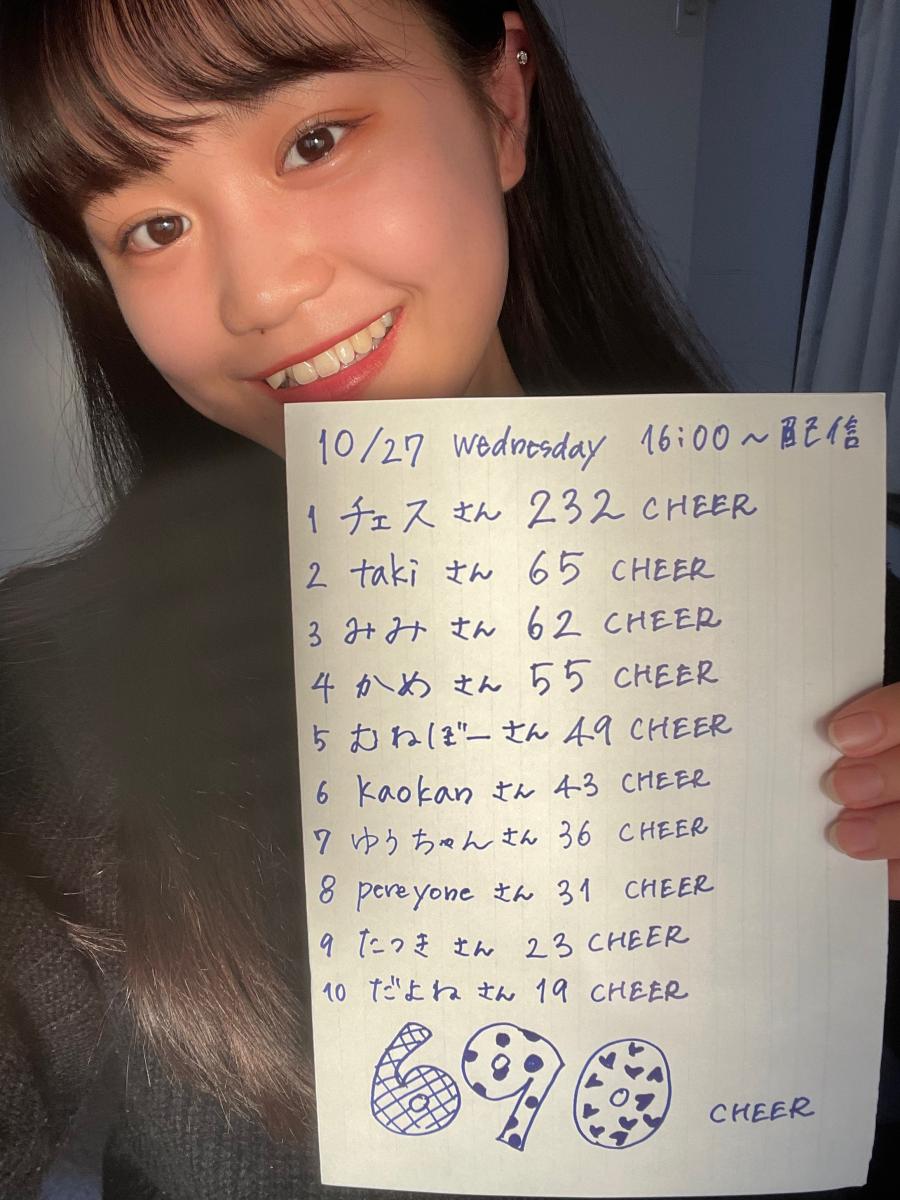 10/27 wednesday 16:00～配信
1 チェス さん 232 CHEER
2 taki さん 65 CHEER
3 みみ さん 62 CHEER
4 かめ さん 55 CHEER
5 むねぼー さん 49 CHEER
6 kaokan さん 43 CHEER
7 ゆうちゃん さん 36 CHEER
8 pereyone さん 31 CHEER
9 たつき さん 23 CHEER
10 だよね さん 19 CHEER
690 CHEER